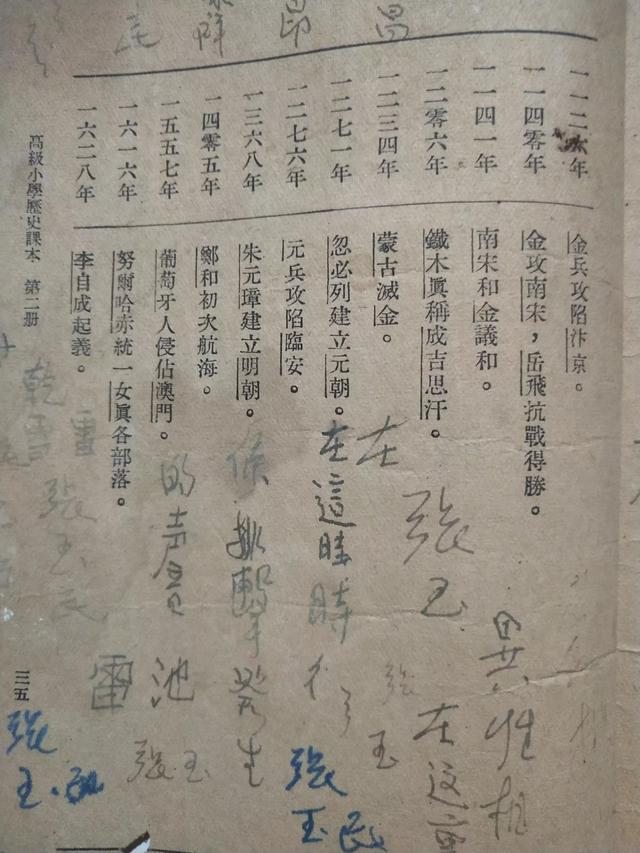 一一二六年 金兵攻陷汴京。
一一四零年 金攻南宋，岳飛抗戰得勝。
一一四一年 南宋和金議和。
一二零六年 鐵木眞稱成吉思汗。
一二三四年 蒙古滅金。
一二七一年 忽必列建立元朝。
一二七六年 元兵攻陷臨安。
一三六八年 朱元璋建立明朝。
一四零五年 鄭和初次航海。
一五五七年 葡萄牙人侵佔澳門。
一六一六年 努爾哈赤統一女眞各部落。
一六二八年 李自成起義。
高級小學歷史課本 第二册
三五
昂
異性相
張玉
在這
在
張玉
在這時時
張玉民
候
發生
的声音
池
張玉
雷
雷
張玉民
張玉